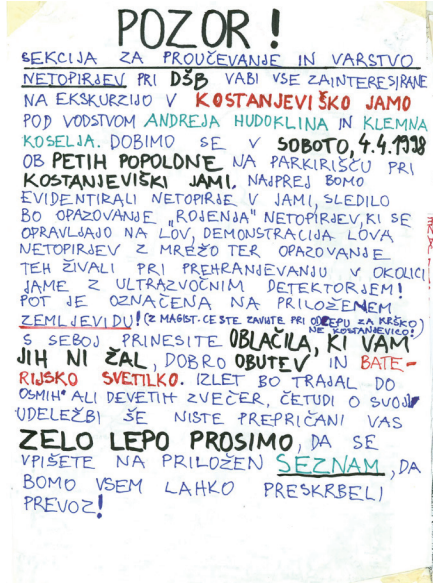 POZOR!
SEKCIJA ZA PROUČEVANJE IN VARSTVO
NETOPIRJEV PRI DŠB VABI VSE ZAINTERESIRANE
NA EKSKURZIJO V KOSTANJEVIŠKO JAMO
POD VODSTVOM ANDREJA HUDOKLINA IN KLEMNA
KOSELJA. DOBIMO SE V SOBOTO, 4.4.1998
OB PETIH POPOLDNE NA PARKIRIŠČU PRI
KOSTANJEVIŠKI JAMI. NAJPREJ BOMO
EVIDENTIRALI NETOPIRJE V JAMI, SLEDILO
BO OPAZOVANJE „ROJENJA" NETOPIRJEV, KI SE
OPRAVLJAJO NA LOV, DEMONSTRACIJA LOVA
NETOPIRJEV Z MREŽO TER OPAZOVANJE
TEH ŽIVALI PRI PREHRANJEVANJU V OKOLICI
JAME Z ULTRAZVOČNIM DETEKTORJEM!
POT JE OZNAČENA NA PRILOŽENEM
ZEMLJEVIDU! (Z MAGIST. CESTE ZAVIJTE PRI ODCEPU ZA KRŠKO, NE KOSTANJEVICO!)
S SEBOJ PRINESITE OBLAČILA, KI VAM
JIH NI ŽAL, DOBRO OBUTEV IN BATE-
RIJSKO SVETILKO. IZLET BO TRAJAL DO
OSMIH ALI DEVETIH ZVEČER, ČETUDI O SVOJI
UDELEŽBI ŠE NISTE PREPRIČANI VAS
ZELO LEPO PROSIMO, DA SE
VPIŠETE NA PRILOŽEN SEZNAM, DA
BOMO VSEM LAHKO PRESKRBELI
PREVOZ!